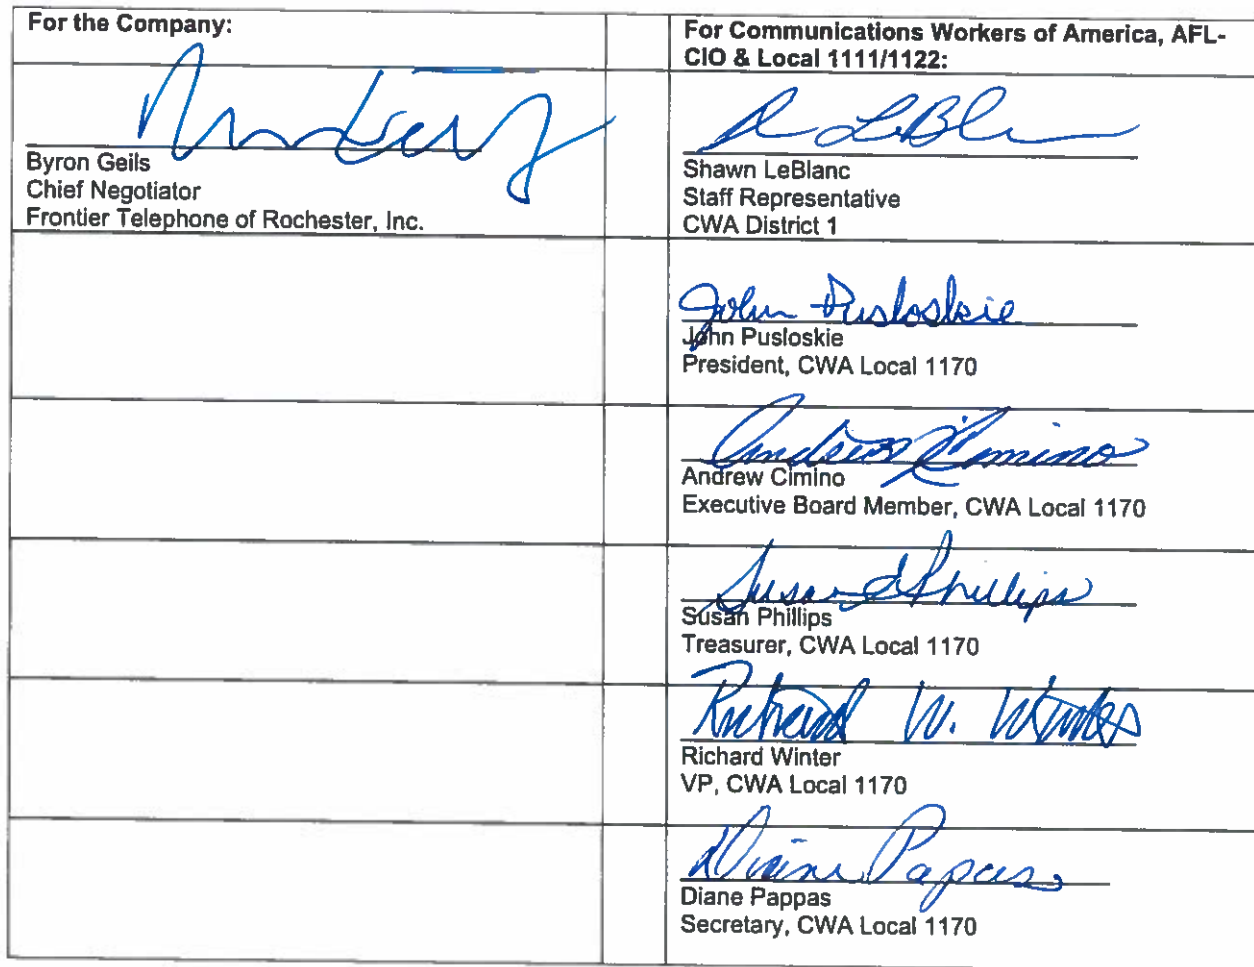 For the Company:
For Communications Workers of America, AFL-
CIO & Local 1111/1122:
Byron Geils
Chief Negotiator
Frontier Telephone of Rochester, Inc.
Shawn LeBlanc
Staff Representative
CWA District 1
John Pusloskie
John Pusloskie
President, CWA Local 1170
Andrew Cimino
Andrew Cimino
Executive Board Member, CWA Local 1170
Susan Phillips
Susan Phillips
Treasurer, CWA Local 1170
Richard W. Winter
Richard Winter
VP, CWA Local 1170
Diane Pappas
Diane Pappas
Secretary, CWA Local 1170